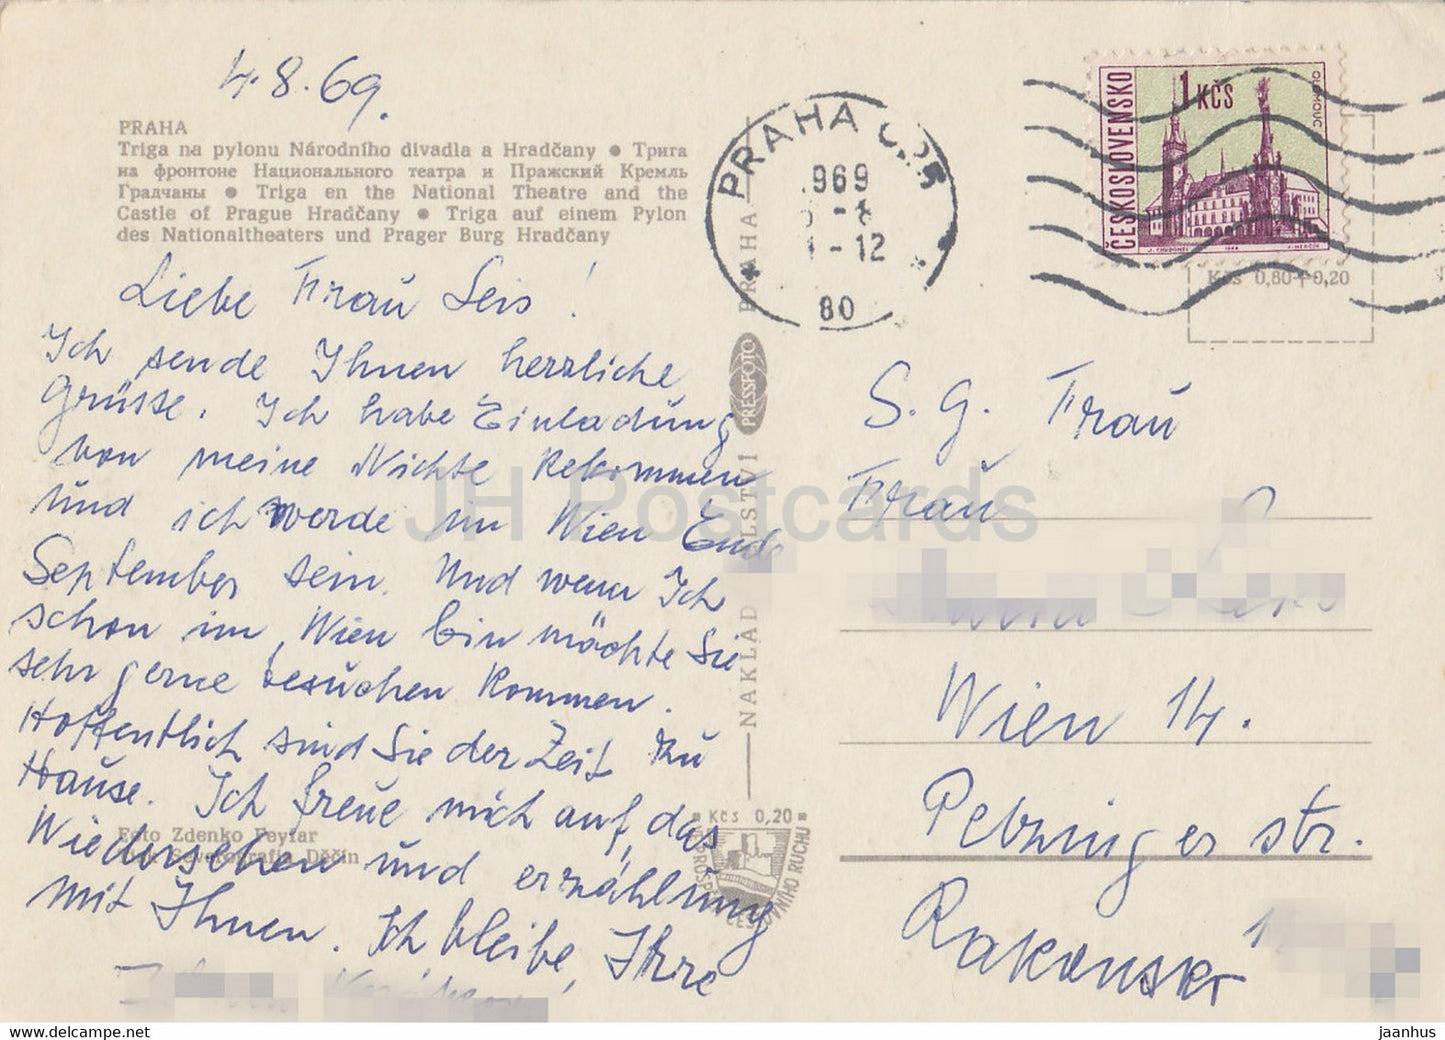 4.8.69.
PRAHA
Triga na pylonu Národního divadla a Hradčany • Трига
на фронтоне Национального театра и Пражский Кремль
Градчаны • Triga en the National Theatre and the
Castle of Prague Hradčany • Triga auf einem Pylon
des Nationaltheaters und Prager Burg Hradčany
Liebe Frau Seis!
Ich sende Ihnen herzliche
Grüsse. Ich habe Einladung
von meine Nichte bekommen
und ich werde im Wien Ende
September sein. Und wenn Ich
schon im Wien bin möchte Sie
sehr gerne besuchen kommen.
Hoffentlich sind Sie der Zeit zu
Hause. Ich freue mich auf das
Wiedersehen und erzählung
mit Ihnen. Ich bleibe, Ihre
Foto Zdenko Feyfar
Děčín
NAKLAD
PRAHA
PRESSFOTO
Kčs 0,20
PRAHA
969
-12
80
ČESKOSLOVENSKO
1 KČS
OLOMOUC
Kčs 0,80+0,20
S. G. Frau
Frau
Wien 14.
Penzingerstr.
Rakousko
JH Postcards
jaanhus